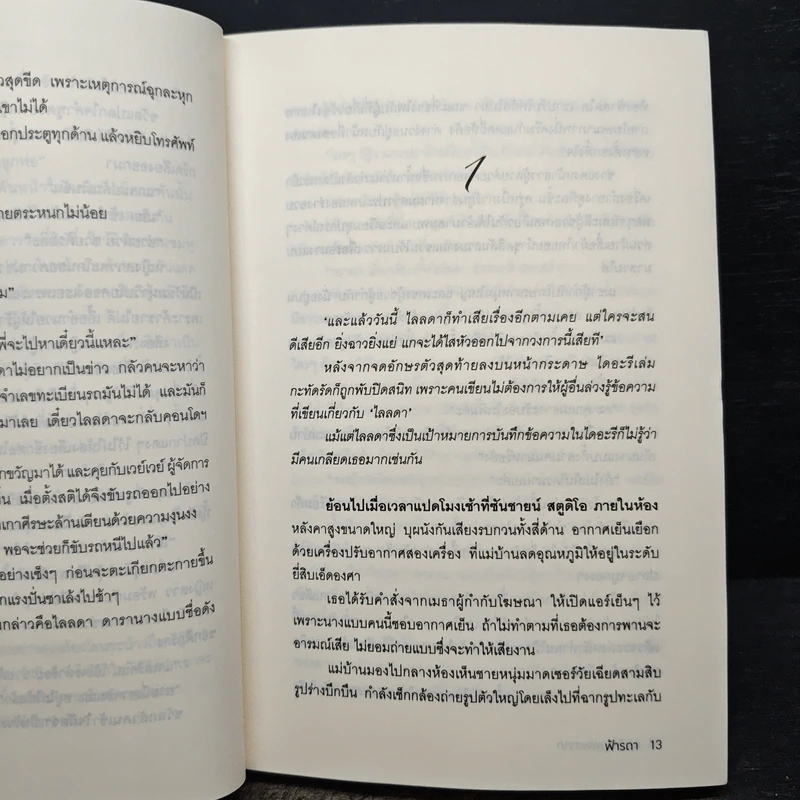 วสุดขีด เพราะเหตุการณ์ฉุกละหุก
เขาไม่ได้
อกประตูทุกด้าน แล้วหยิบโทรศัพท์
ายตระหนกไม่น้อย
ม”
พี่จะไปหาเดี๋ยวนี้แหละ”
ดาไม่อยากเป็นข่าว กลัวคนจะหาว่า
จำเลขทะเบียนรถมันไม่ได้ และมันก็
มาเลย เดี๋ยวไลลดาจะกลับคอนโดฯ
กขวัญมาได้ และคุยกับเวย์เวย์ ผู้จัดการ
้น เมื่อตั้งสติได้จึงขับรถออกไปอย่าง
เกาศีรษะล้านเตียนด้วยความงุนงง
พอจะช่วยก็ขับรถหนีไปแล้ว”
อย่างเซ็งๆ ก่อนจะตะเกียกตะกายขึ้น
กแรงปั่นซาเล้งไปช้าๆ
กล่าวคือไลลดา ดารานางแบบชื่อดัง
1
‘และแล้ววันนี้ ไลลดาก็ทำเสียเรื่องอีกตามเคย แต่ใครจะสน
ดีเสียอีก ยิ่งฉาวยิ่งแย่ แกจะได้ไสหัวออกไปจากวงการนี้เสียที’
หลังจากจดอักษรตัวสุดท้ายลงบนหน้ากระดาษ ไดอะรีเล่ม
กะทัดรัดก็ถูกพับปิดสนิท เพราะคนเขียนไม่ต้องการให้ผู้อื่นล่วงรู้ข้อความ
ที่เขียนเกี่ยวกับ ‘ไลลดา’
แม้แต่ไลลดาซึ่งเป็นเป้าหมายการบันทึกข้อความในไดอะรีก็ไม่รู้ว่า
มีคนเกลียดเธอมากเช่นกัน
ย้อนไปเมื่อเวลาแปดโมงเช้าที่ซันชายน์ สตูดิโอ ภายในห้อง
หลังคาสูงขนาดใหญ่ บุผนังกันเสียงรบกวนทั้งสี่ด้าน อากาศเย็นเยือก
ด้วยเครื่องปรับอากาศสองเครื่อง ที่แม่บ้านลดอุณหภูมิให้อยู่ในระดับ
ยี่สิบเอ็ดองศา
เธอได้รับคำสั่งจากเมธาผู้กำกับโฆษณา ให้เปิดแอร์เย็นๆ ไว้
เพราะนางแบบคนนี้ชอบอากาศเย็น ถ้าไม่ทำตามที่เธอต้องการพานจะ
อารมณ์เสีย ไม่ยอมถ่ายแบบซึ่งจะทำให้เสียงาน
แม่บ้านมองไปกลางห้องเห็นชายหนุ่มมาดเซอร์วัยเฉียดสามสิบ
รูปร่างบึกบึน กำลังเช็กกล้องถ่ายรูปตัวใหญ่โดยเล็งไปที่ฉากรูปทะเลกับ
ฟ้ารดา 13